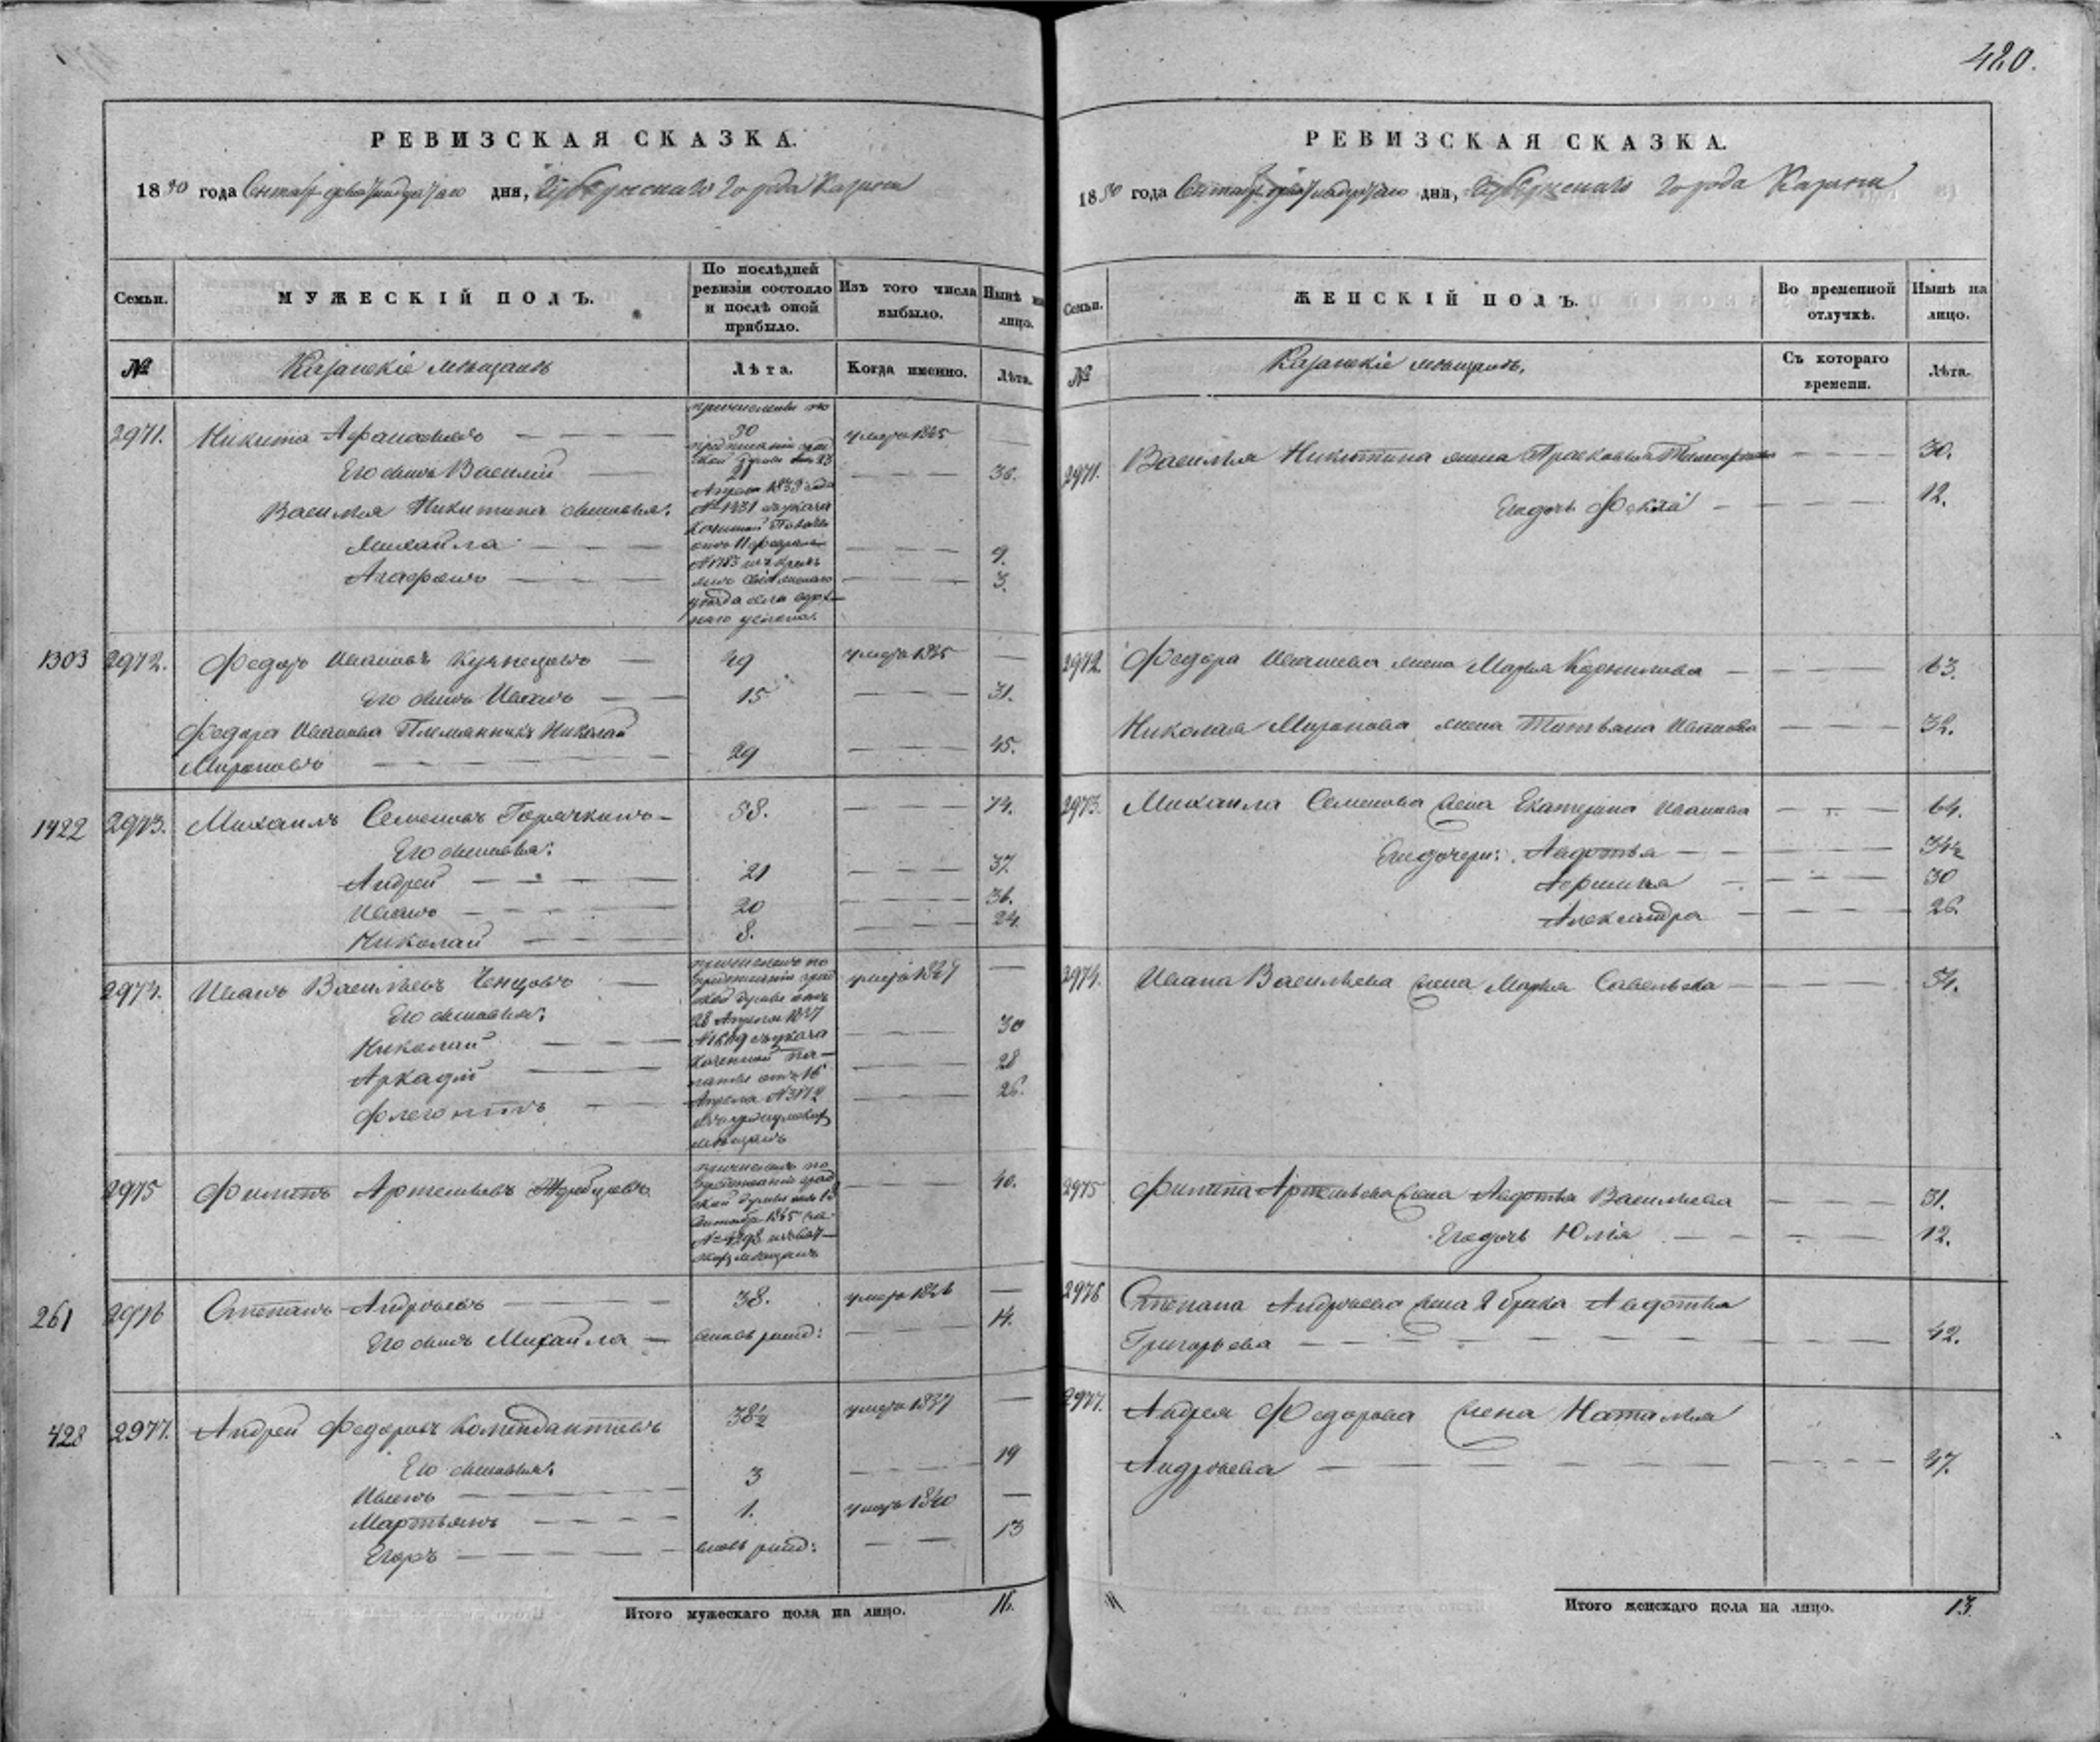 420.
РЕВИЗСКАЯ СКАЗКА.
1850 года Сентяб. дня, Губернскаго города Казани
Семьи.
МУЖЕСКІЙ ПОЛЪ.
По послѣдней ревизіи состояло и послѣ оной прибыло.
Изъ того числа выбыло.
Нынѣ на лицо.
№
Казанскіе мѣщане
Лѣта.
Когда именно.
Лѣта.
причислены по
2971. Никита Афанасьевъ — 30 умеръ 1845 —
предписанію град
ской думы 23
Его сынъ Василій — 21 — 36.
Апреля 1839 года
Василья Никитина сыновья: № 1431 съ указа
Казенной Палаты
Михайла — — 9.
отъ 11 февраля
№ 1783 изъ
Агафонъ — — 3.
уѣзда села
1303 2972. Федоръ Ивановъ Кузнецовъ — 49 умеръ 1845 —
Его сынъ Иванъ — 15 — 31.
Федора Иванова Племянникъ Николай
Мироновъ — 29 — 45.
1422 2973. Михаилъ Семеновъ Горячкинъ — 58. — 74.
Его сыновья:
Андрей — 21 — 37.
Иванъ — 20 — 36.
Николай — 8. — 24.
причисленъ по
2974. Иванъ Васильевъ Ченцовъ — умеръ 1849 —
предписанію град
ской думы отъ
Его сыновья:
28 Апреля 1837
Николай — — 30
съ указа
Аркадій — — 28
Казенной Па-
латы отъ 16
Флегонтъ — — 26.
Апреля № 3172
мѣщанъ
причисленъ по
2975 Филипъ Артемьевъ Жеребцовъ — 40.
предписанію град
ской думы
1845 за
мѣщанъ
261 2976 Степанъ Андреевъ — 38. умеръ 1846 —
Его сынъ Михайла — вновь рожд: — 14.
428 2977. Андрей Федоровъ Комендантовъ 38½ умеръ 1837 —
Его сыновья:
Иванъ — 3 — 19
Мартьянъ — 1. умеръ 1840 —
Егоръ — вновь рожд: — 13
Итого мужескаго пола на лицо. 16.
РЕВИЗСКАЯ СКАЗКА.
1850 года Сентяб. дня, Губернскаго города Казани
Семьи.
ЖЕНСКІЙ ПОЛЪ.
Во временной отлучкѣ.
Нынѣ на лицо.
№
Казанскіе мѣщане.
Съ котораго времени.
Лѣта.
2971. Василья Никитина жена Прасковья Тимофеева — 30.
Ея дочь Фекла — 12.
2972. Федора Иванова жена Марья Корнилова — 63.
Николая Миронова жена Татьяна Иванова — 32.
2973. Михаила Семенова жена Екатерина Иванова — 64.
Ея дочери: Авдотья — 34½
Аграфена — 30
Александра — 26.
2974. Ивана Васильева жена Марья Савельева — 54.
2975 Филипа Артемьева жена Авдотья Васильева — 31.
Его дочь Юлія — 12.
2976 Степана Андреева жена 2 брака Авдотья
Григорьева — 42.
2977. Андрея Федорова жена Наталья
Андреева — 37.
Итого женскаго пола на лицо. 13.